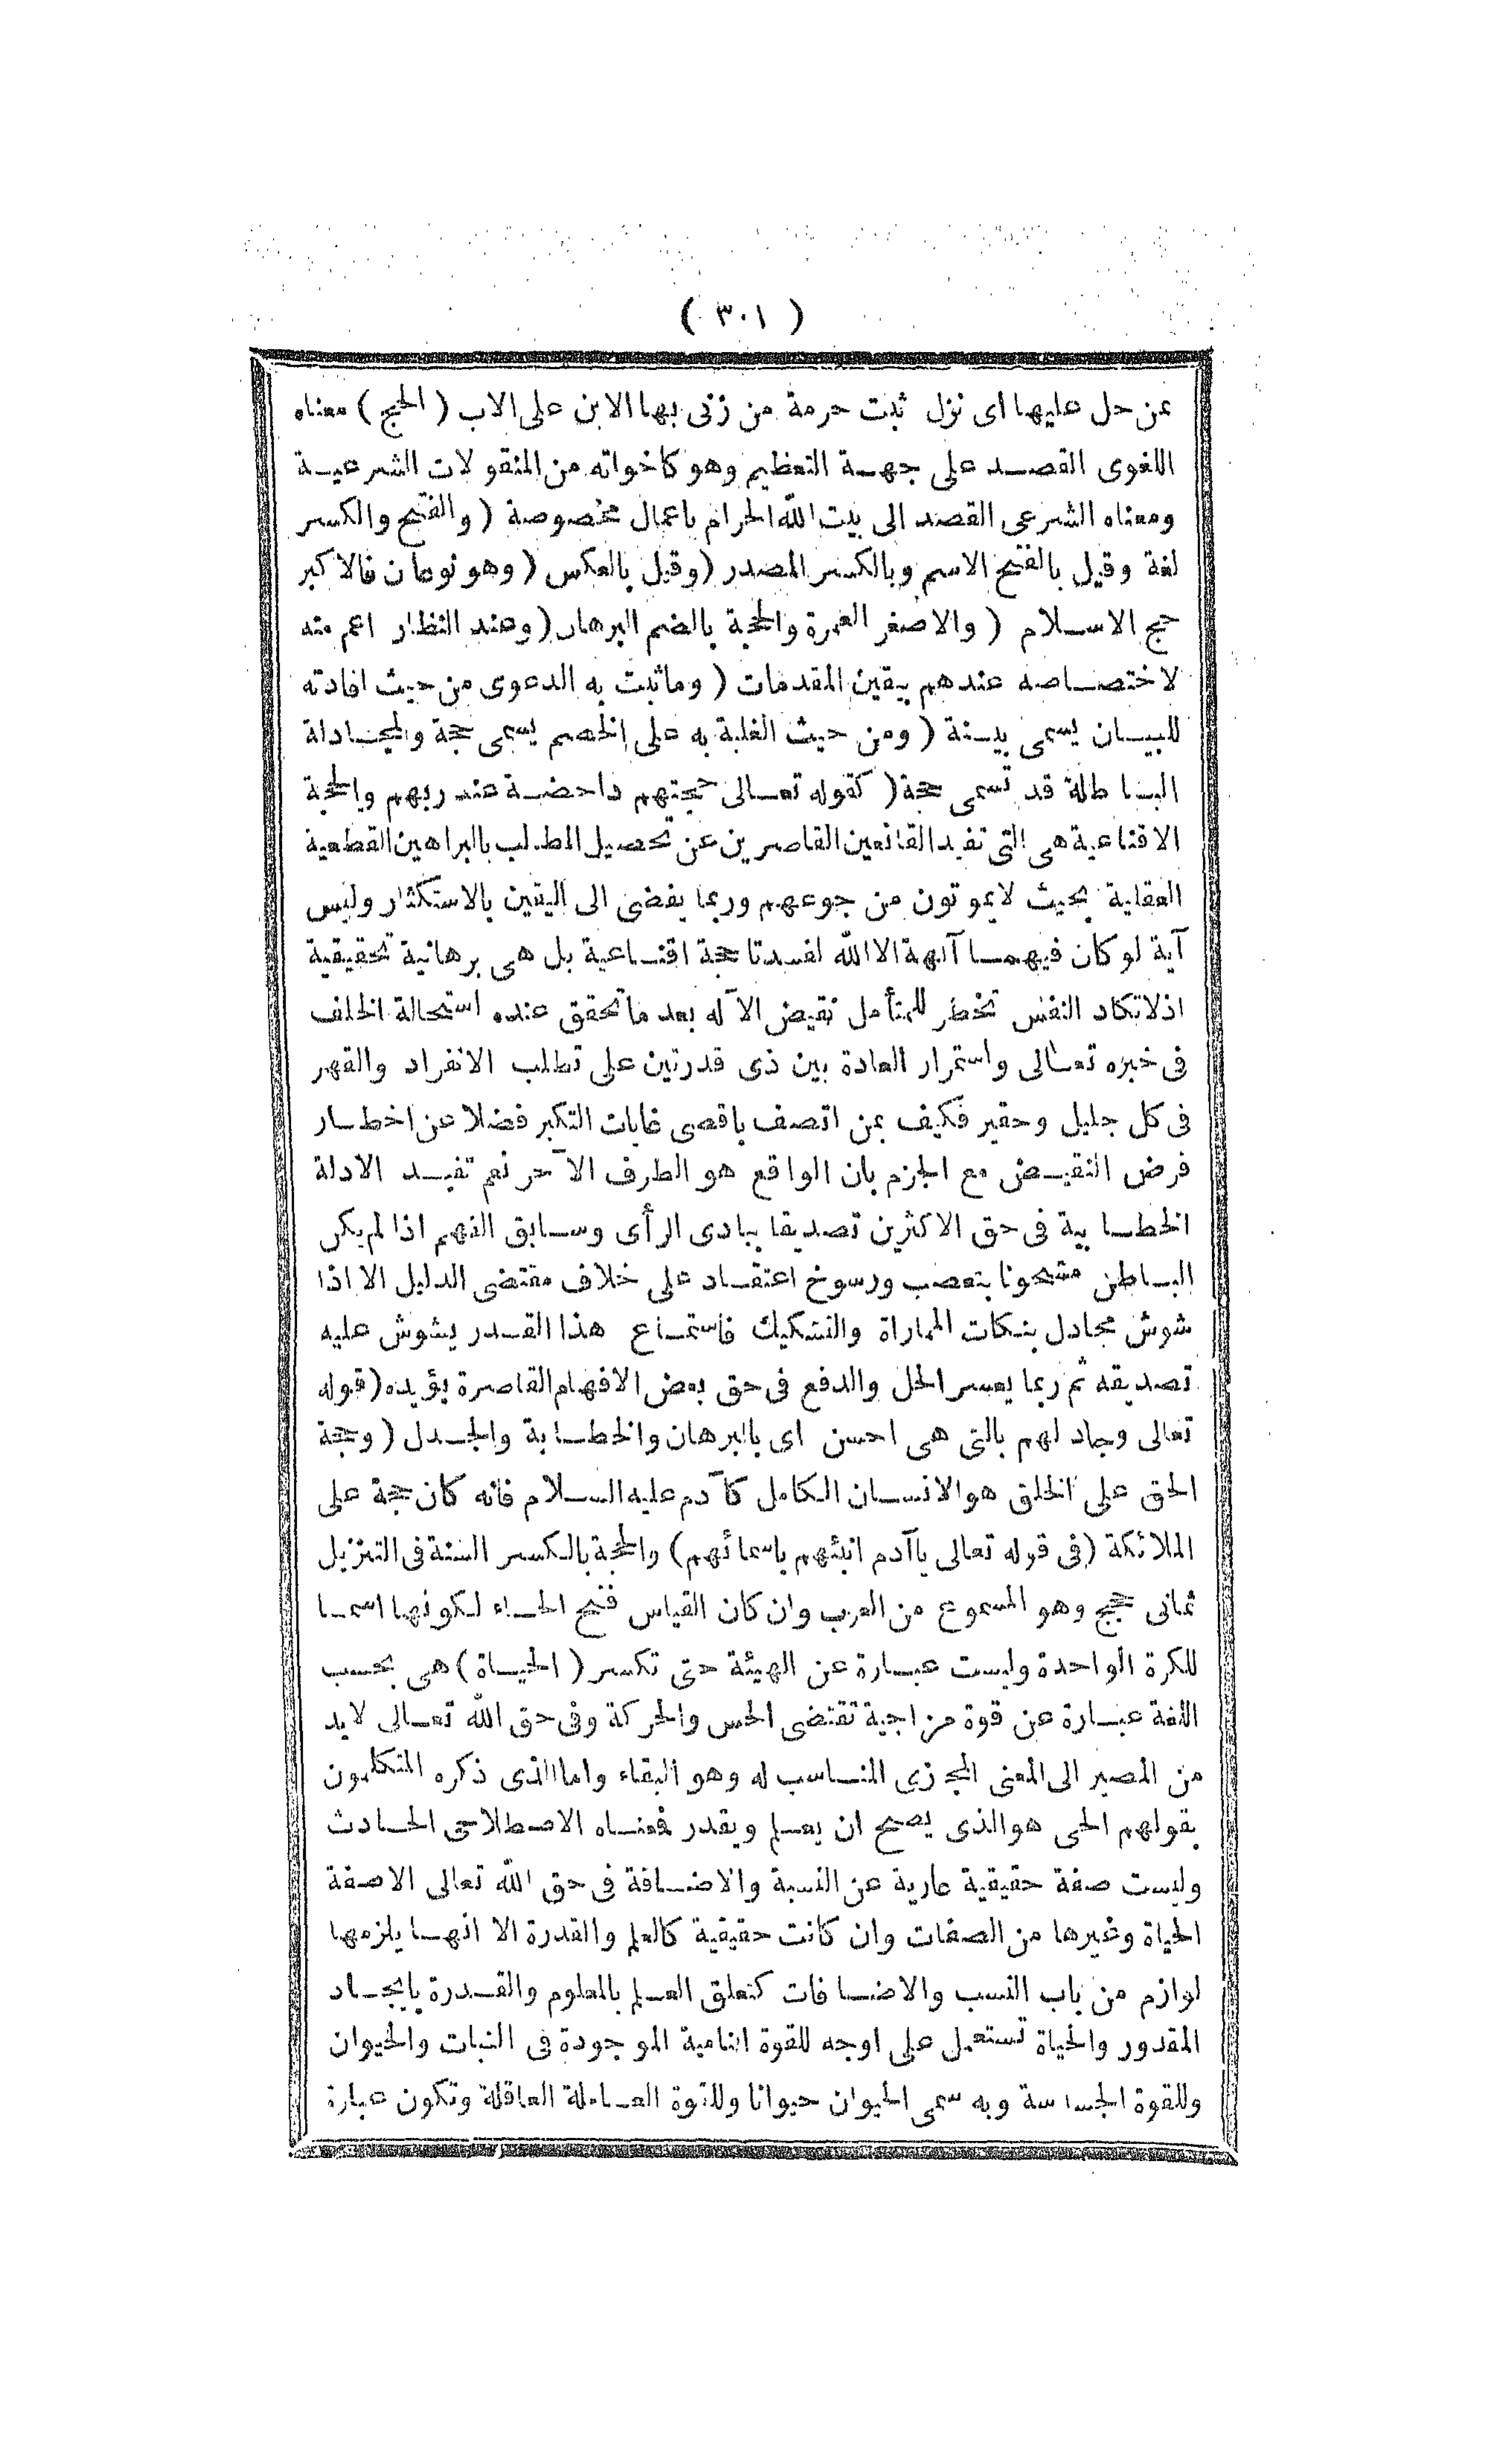 ( ٣٠١ )
عن حل عليها اى نزل ثبت حرمة من زنى بها الابن على الاب ( الحج ) معناه
اللغوى القصد على جهة التعظيم وهو كاخواته من المنقولات الشرعية
ومعناه الشرعى القصد الى بيت الله الحرام باعمال مخصوصة ( والفتح والكسر
لغة وقيل بالفتح الاسم وبالكسر المصدر (وقيل بالعكس ( وهو نوعان فالاكبر
حج الاسلام ( والاصغر العمرة والحجة بالضم البرهان (وعند النظار اعم منه
لاختصاصه عندهم بيقين المقدمات ( وماثبت به الدعوى من حيث افادته
للبيان يسمى بينة ( ومن حيث الغلبة به على الخصم يسمى حجة والمجادلة
الباطلة قد تسمى حجة( كقوله تعالى حجتهم داحضة عند ربهم والحجة
الاقناعية هى التى تفيد القانعين القاصرين عن تحصيل المطلب بالبراهين القطعية
العقلية بحيث لايموتون من جوعهم وربما يفضى الى اليقين بالاستكثار وليس
آية لو كان فيهما آلهة الا الله لفسدتا حجة اقناعية بل هى برهانية تحقيقية
اذلاتكاد النفس تخطر للمتأمل نقيض الآله بعد ماتحقق عنده استحالة الخلف
فى خبره تعالى واستمرار العادة بين ذى قدرتين على تطلب الانفراد والقهر
فى كل جليل وحقير فكيف بمن اتصف باقصى غايات التكبر فضلا عن اخطار
فرض النقيض مع الجزم بان الواقع هو الطرف الآخر نعم تفيد الادلة
الخطابية فى حق الاكثرين تصديقا ببادى الرأى وسابق الفهم اذا لم يكن
الباطن مشحونا بتعصب ورسوخ اعتقاد على خلاف مقتضى الدليل الا اذا
شوش مجادل بنكات المماراة والتشكيك فاستماع هذا القدر يشوش عليه
تصديقه ثم ربما يعسر الحل والدفع فى حق بعض الافهام القاصرة يؤيده (قوله
تعالى وجاد لهم بالتى هى احسن اى بالبرهان والخطابة والجدل ( وحجة
الحق على الخلق هو الانسان الكامل كآدم عليه السلام فانه كان حجة على
الملائكة (فى قوله تعالى ياآدم انبئهم باسمائهم) والحجة بالكسر السنة فى التنزيل
ثمانى حجج وهو المسموع من العرب وان كان القياس فتح الحاء لكونها اسما
للكرة الواحدة وليست عبارة عن الهيئة حتى تكسر ( الحياة ) هى بحسب
اللغة عبارة عن قوة مزاجية تقتضى الحس والحركة وفى حق الله تعالى لابد
من المصير الى المعنى المجازى المناسب له وهو البقاء واما الذى ذكره المتكلمون
بقولهم الحى هو الذى يصح ان يعلم ويقدر فمعناه الاصطلاحى الحادث
وليست صفة حقيقية عارية عن النسبة والاضافة فى حق الله تعالى الاصفة
الحياة وغيرها من الصفات وان كانت حقيقية كالعلم والقدرة الا انها يلزمها
لوازم من باب النسب والاضافات كتعلق العلم بالمعلوم والقدرة بايجاد
المقدور والحياة تستعمل على اوجه للقوة النامية الموجودة فى النبات والحيوان
وللقوة الحساسة وبه سمى الحيوان حيوانا وللقوة العاملة العاقلة وتكون عبارة